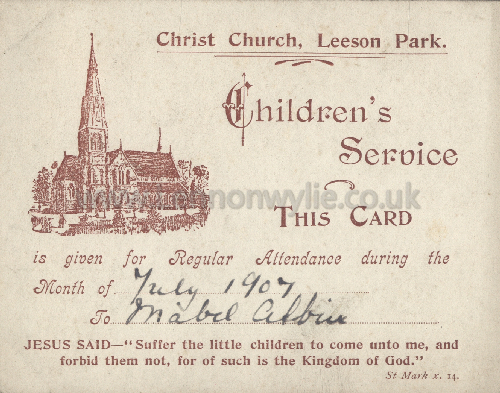 Christ Church, Leeson Park.
Children's
Service
THIS CARD
is given for Regular Attendance during the
Month of July 1907
To Mabel Albin
JESUS SAID—"Suffer the little children to come unto me, and
forbid them not, for of such is the Kingdom of God."
St Mark x. 14.